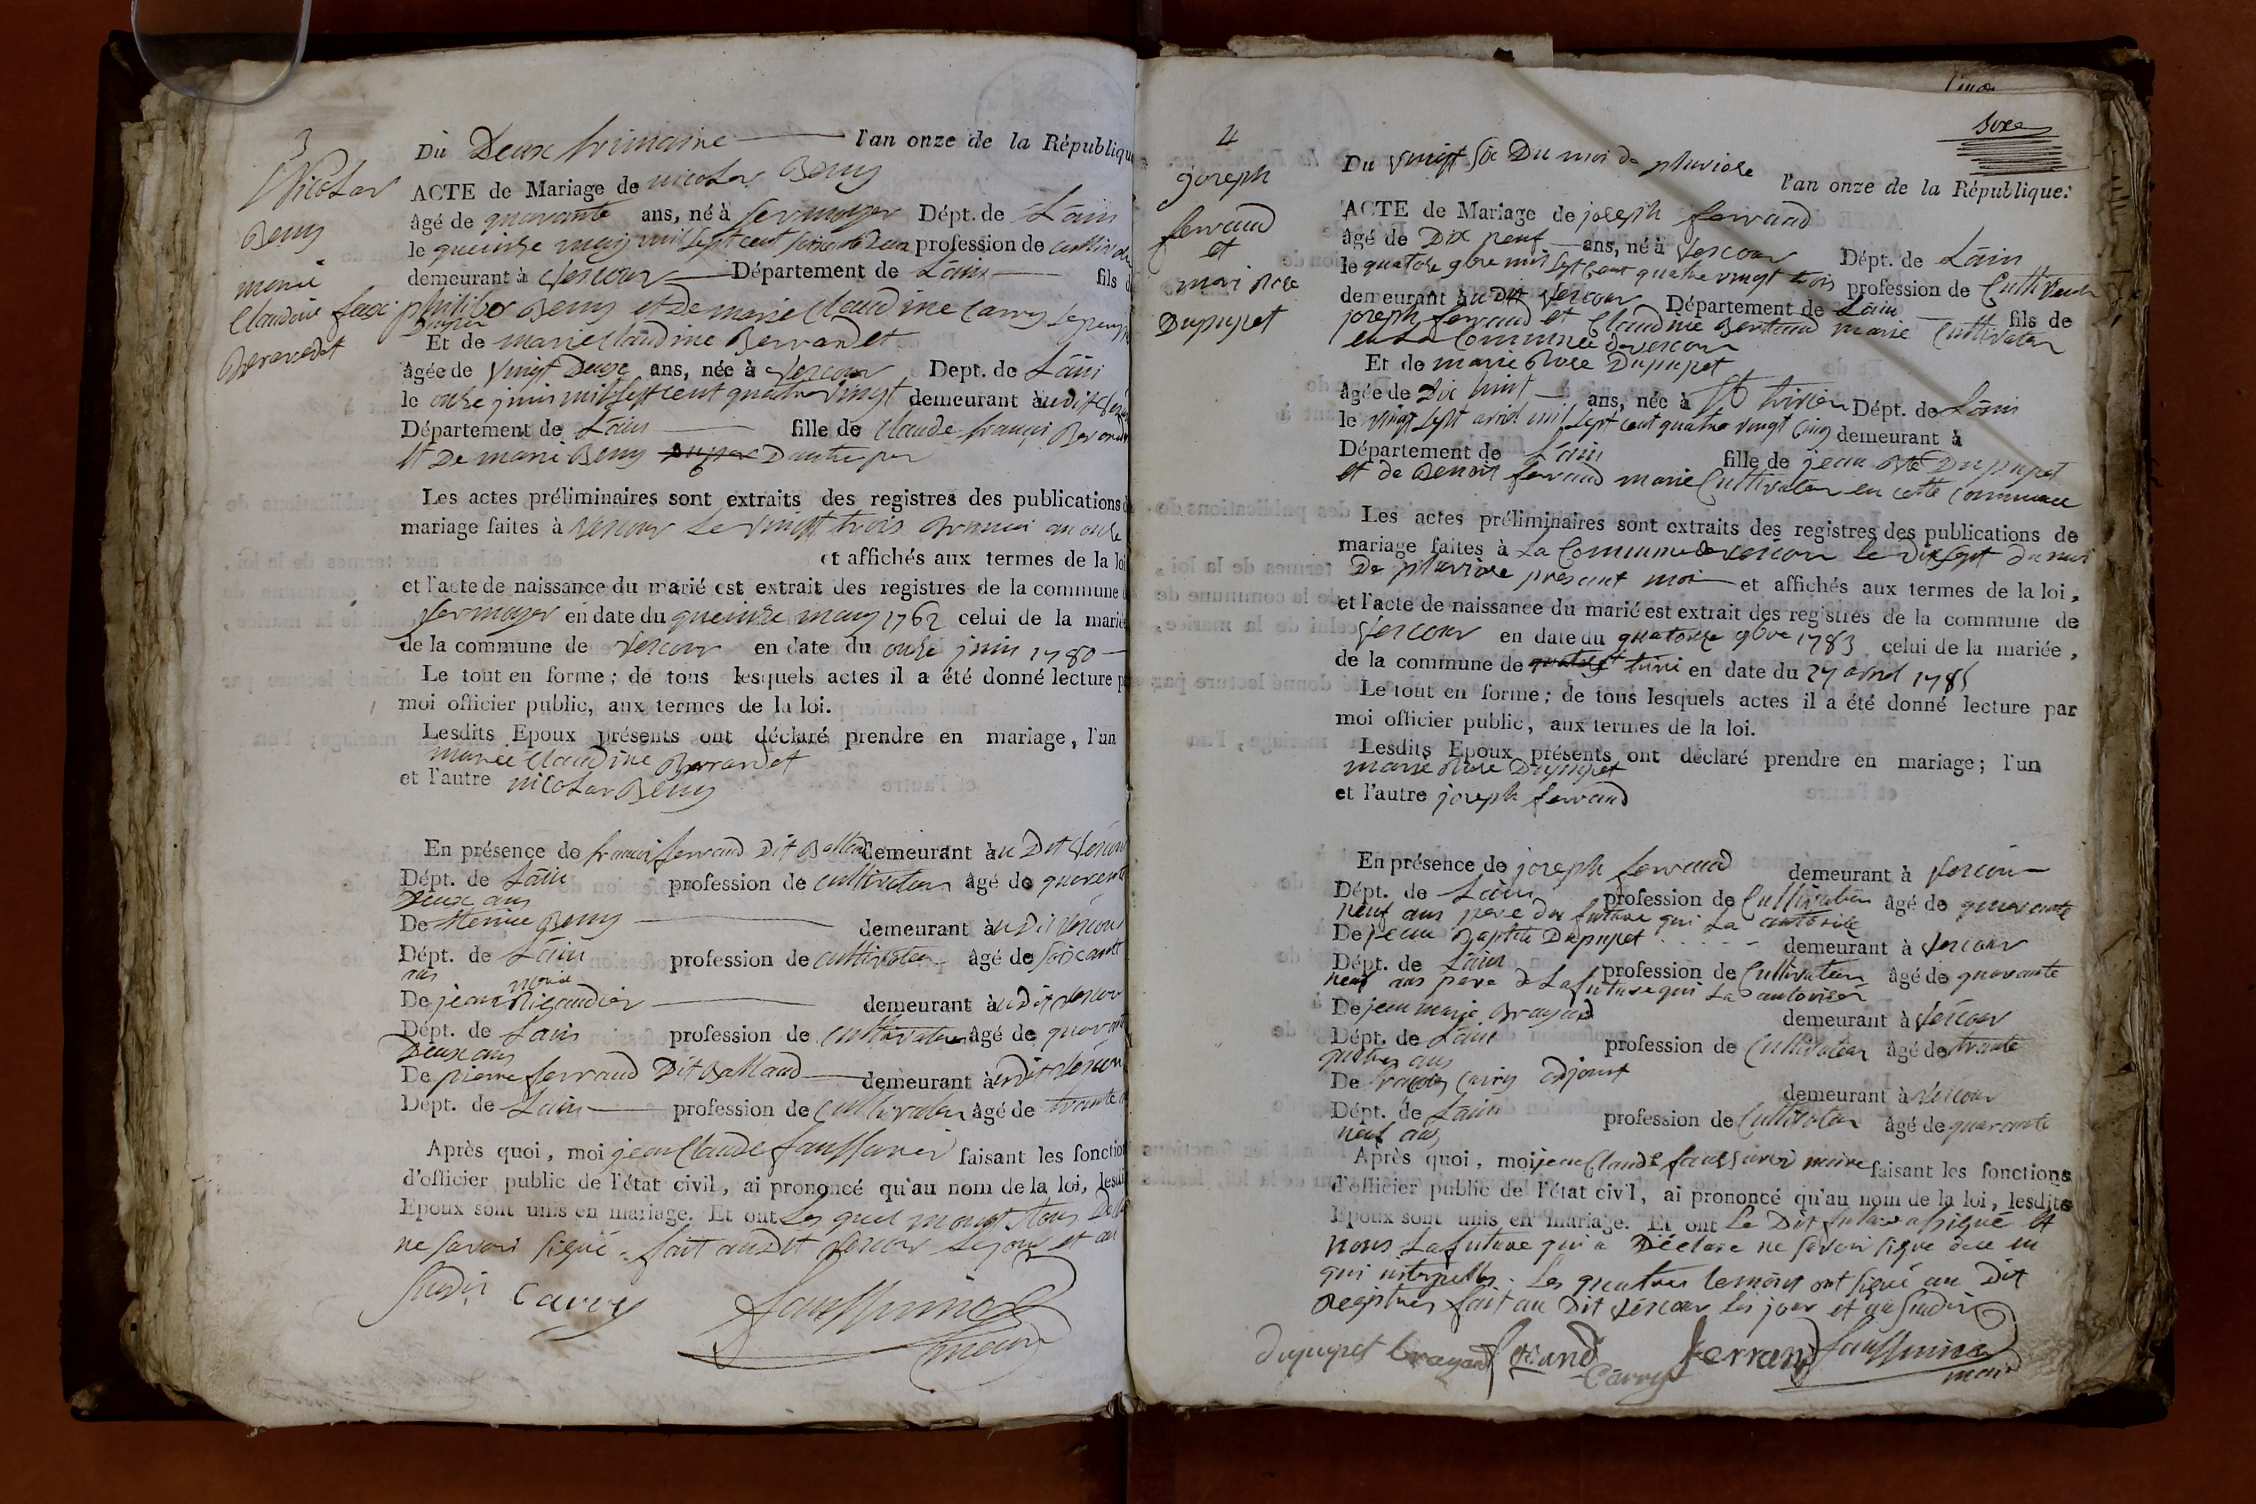 3
Nicolas
Bemy
marié
Claudine
Du Deux frimaire l'an onze de la République
ACTE de Mariage de nicolas Bemy
âgé de quarante ans, né à Sermoyer Dépt. de Lain
le queinse may mil sept cent profession de
demeurant à Vescour Département de Lain fils d
philiber Bemy et De marie Claudine Carry
Et de marie Claudine
âgée de vingt Deux ans, née à Vescour Dept. de Lain
le onse juin mil sept cent quatre vingt demeurant audit
Département de Lain fille de Claude francois
et De marie Bemy D'autre par
Les actes préliminaires sont extraits des registres des publications d
mariage faites à Vescour Le vingt trois Brumai an onse
et affichés aux termes de la loi
et l'acte de naissance du marié est extrait des registres de la commune d
Sermoyer en date du queinse may 1762 celui de la marié
de la commune de Vescour en date du onse juin 1780
Le tout en forme ; de tous lesquels actes il a été donné lecture p
moi officier public, aux termes de la loi.
Lesdits Epoux présents ont déclaré prendre en mariage, l'un
marie Claudine
et l'autre nicolas Bemy
En présence de francoi ferrand Dit demeurant au Dit
Dépt. de Lain profession de cultivateur âgé de
Deux ans
De Bemy demeurant au Dit Vescour
Dépt. de Lain profession de cultivateur âgé de
ans
De jean marie demeurant au Dit Vescour
Dépt. de Lain profession de cultivateur âgé de
Deux ans
De pierre ferraud Dit Balland demeurant audit
Dépt. de Lain profession de cultivateur âgé de trante
Après quoi, moi jean Claude faisant les fonction
d'officier public de l'état civil, ai prononcé qu'au nom de la loi, lesdi
Epoux sont unis en mariage. Et ont Les quel mont tous
ne savoir signé. fait au Dit Vescour Le jour et an
susdit Carry
maire
4
joseph
ferraud
et
mari Rose
Dupupet
Du vingt six Du moi de pluviose l'an onze de la République.
ACTE de Mariage de joseph ferraud
âgé de Dix neuf ans, né à Vescour Dépt. de Lain
le quatorse 9bre mil sept cent quatre vingt trois profession de Cultivateur
demeurant au Dit Vescour Département de Lain fils de
joseph ferraud et Claudine Bertaud marié Cultivateur
en La Commune de vescour
Et de marie Rose Dupupet
âgée de Dix huit ans, née à St trivier Dépt. de Lain
le vingt sept avril mil sept cent quatre vingt cinq demeurant à
Département de Lain fille de jean Bte Dupupet
et de Benoit ferraud marié Cultivateur en cette commune
Les actes préliminaires sont extraits des registres des publications de
mariage faites à La Commune de vescour le Dix sept du moi
De pluviose present moi et affichés aux termes de la loi,
et l'acte de naissance du marié est extrait des registres de la commune de
Vescour en date du quatorse 9bre 1783 celui de la mariée,
de la commune de St trivi en date du 27 avril 1785
Le tout en forme ; de tous lesquels actes il a été donné lecture par
moi officier public, aux termes de la loi.
Lesdits Epoux présents ont déclaré prendre en mariage ; l'un
marie Rose Dupupet
et l'autre joseph ferraud
En présence de joseph ferraud demeurant à Vescour
Dépt. de Lain profession de Cultivateur âgé de quarante
neuf ans pere du future qui La autorisé
De jean Baptite Dupupet demeurant à Vescour
Dépt. de Lain profession de Cultivateur âgé de quarante
neuf ans pere de La future qui La autorisér
De jean marie Brayard demeurant à Vescour
Dépt. de Lain profession de Cultivateur âgé de trante
quatres ans
De Carry adjoint demeurant à Vescour
Dépt. de Lain profession de Cultivateur âgé de quarante
neuf ans
Après quoi, moi jean Claude maire faisant les fonctions
d'officier public de l'état civil, ai prononcé qu'au nom de la loi, lesdits
Epoux sont unis en mariage. Et ont Le Dit future a signé et
nons La future qui a Déclare ne savoir signe de ce
qui Les quatres temoins ont signé au Dit
Registres fait au Dit Vescour les jour et an susdit
dupupet brayard ferrand
Carry
ferrand
maire